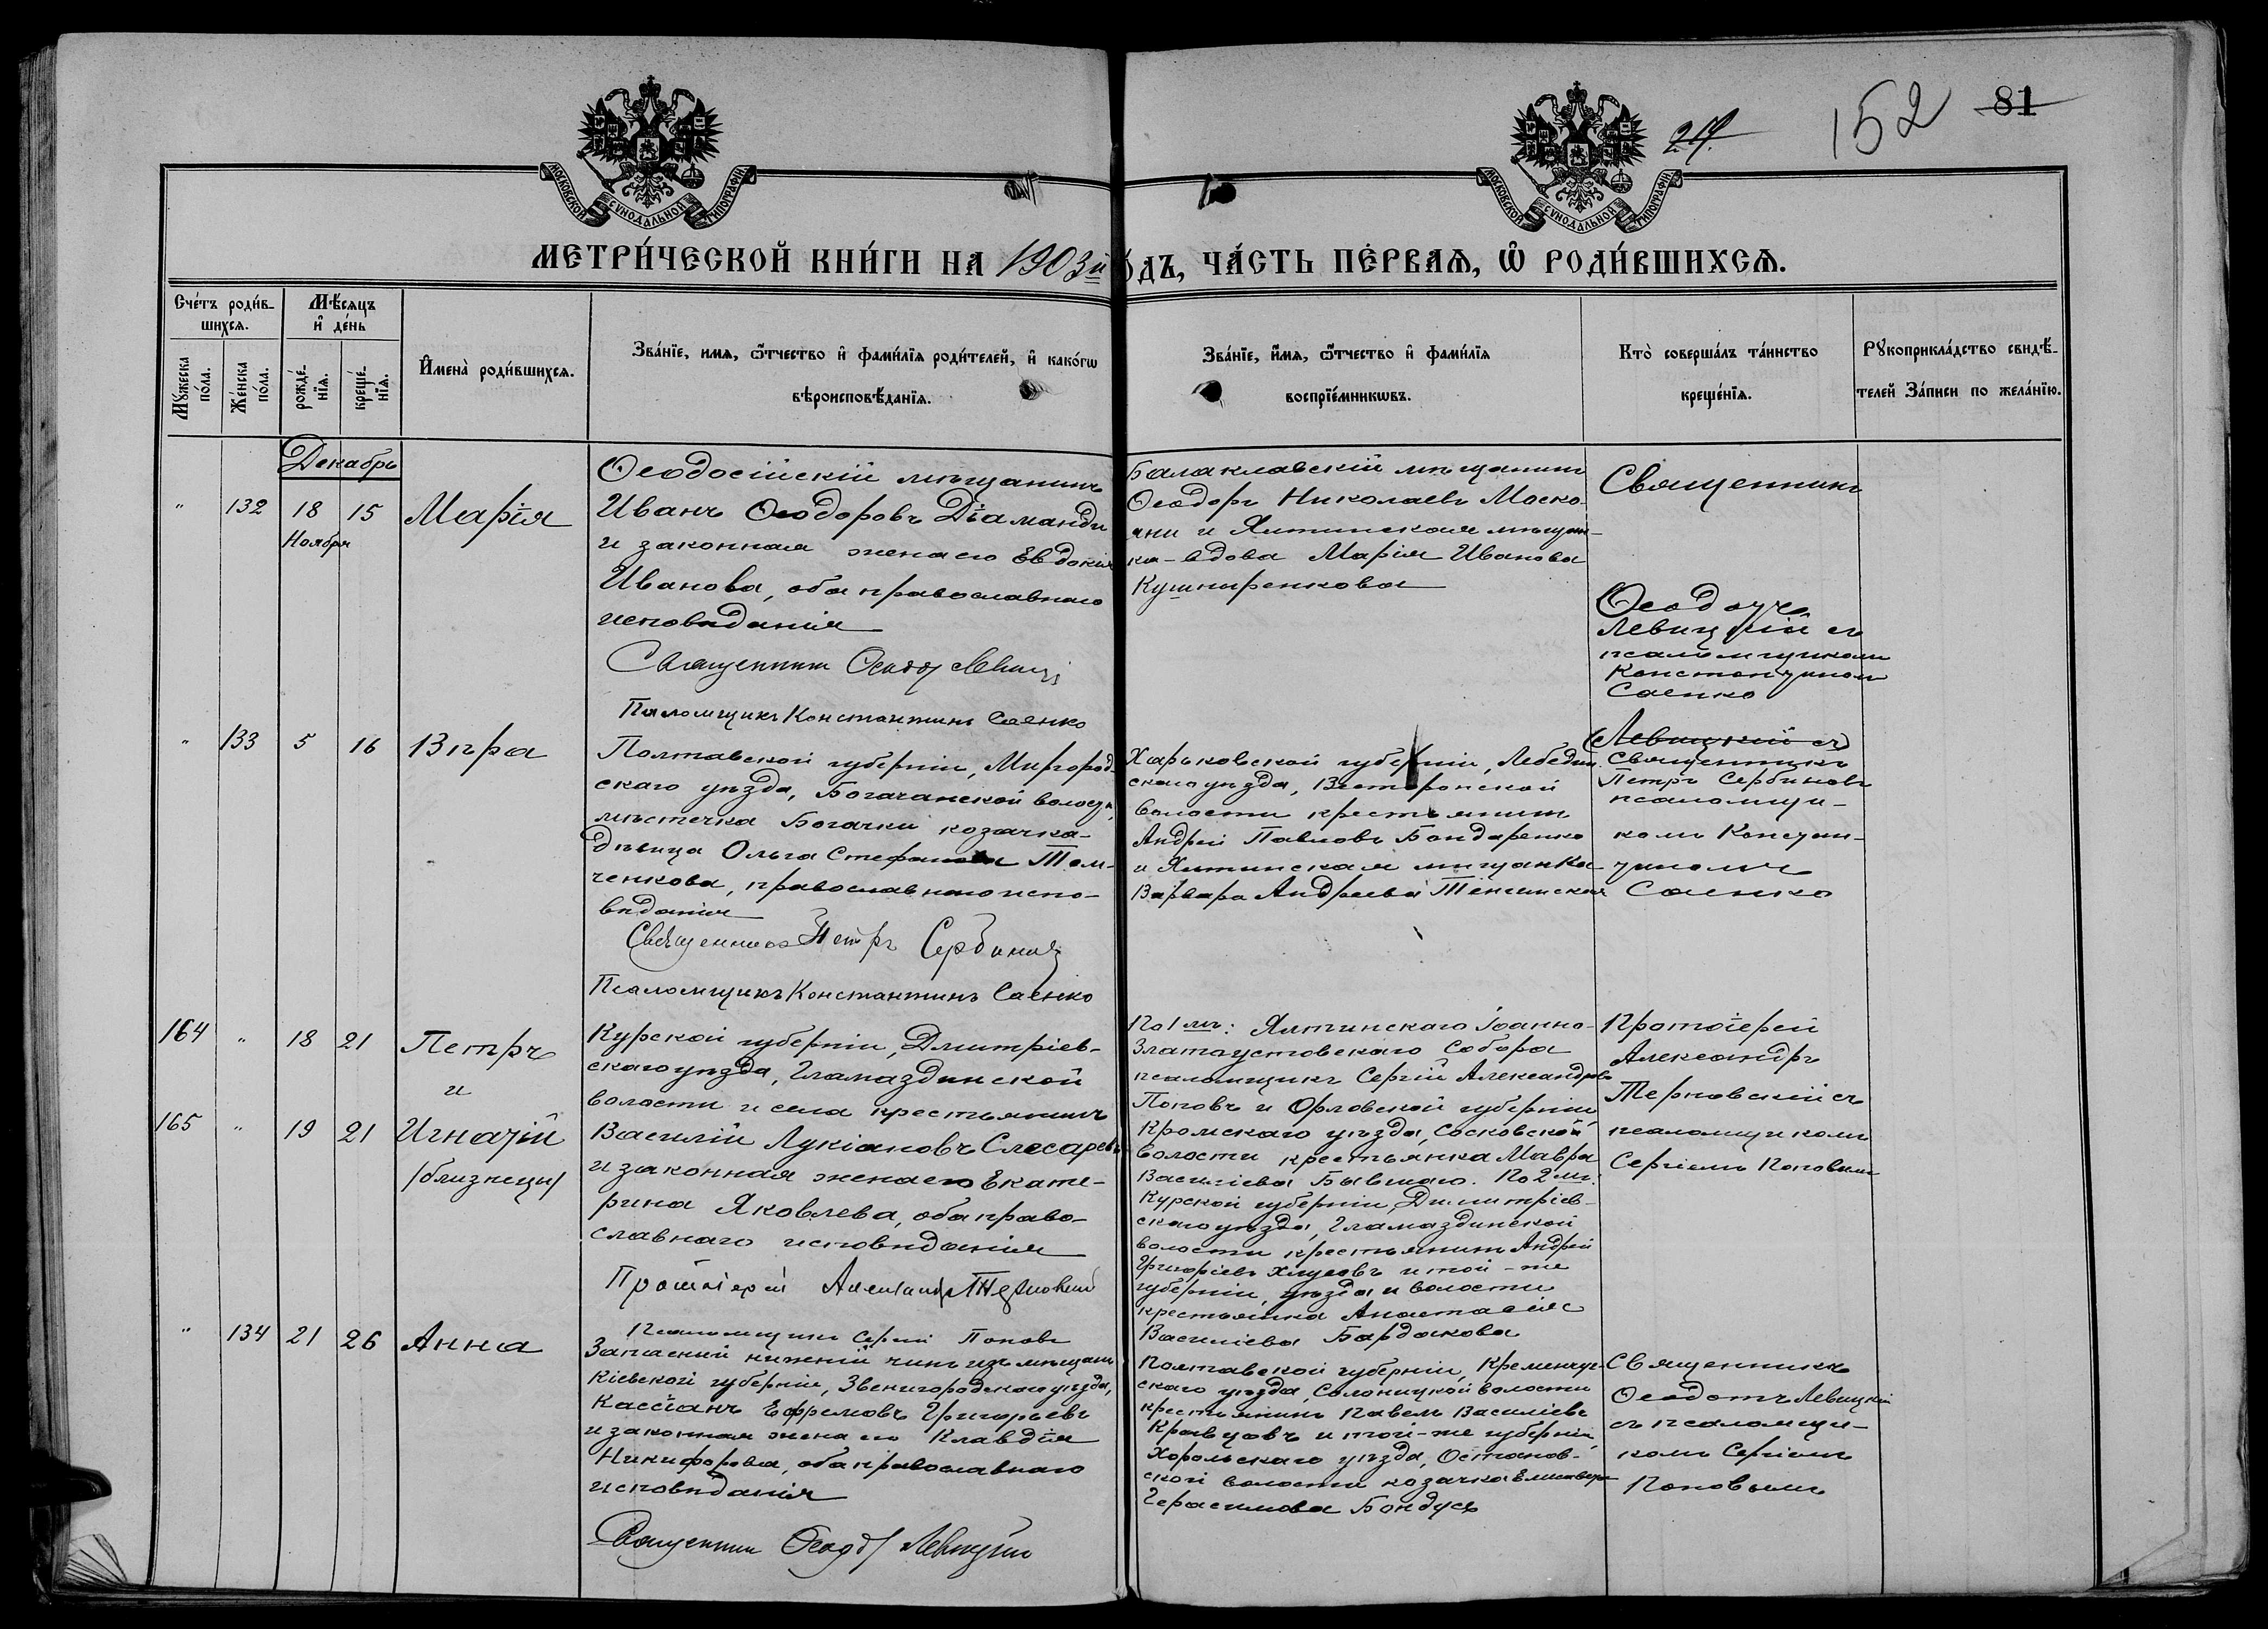 81
152
24.
МОСКОВСКОЙ СѴНОДАЛЬНОЙ ТИПОГРАФІИ
МОСКОВСКОЙ СѴНОДАЛЬНОЙ ТИПОГРАФІИ
МЕТРИ́ЧЕСКОЙ КНИ́ГИ НА 1903й го́дъ, ЧА́СТЬ ПЕ́РВАѦ, Ѽ РОДИ́ВШИХСѦ.
Сче́тъ роди́в-
шихсѧ.
Мꙋжеска по́ла.
Же́нска по́ла.
Мѣ́сяцъ
и҆ де́нь
рожде́-
нїѧ.
креще́-
нїѧ.
И҆мена̀ роди́вшихсѧ.
Зва́нїе, имѧ, ѿтчество и҆ фами́лїѧ роди́телей, и҆ како́гѡ
вѣроисповѣ́данїѧ.
Зва́нїе, и҆мѧ, ѿтчество и҆ фами́лїѧ
воспрїе́мникѡвъ.
Кто̀ соверша́лъ та́инство
креще́нїѧ.
Рꙋкоприкла́дство свидѣ́-
телей За́писи по жела́нїю.
Декабрь
" 132 18 15 Марія
Ноября
Ѳеодосійскій мѣщанинъ
Иванъ Ѳеодоровъ Діаманди
и законная жена его Евдокія
Иванова, оба православнаго
исповѣданія
Священникъ
Псаломщикъ Константинъ Саенко
Балаклавскій мѣщанинъ
Ѳеодоръ Николаевъ Моско-
яни и Ялтинская мѣщан-
ка-вдова Марія Иванова
Кушниренкова
Священникъ
Ѳеодотъ
Левицкій съ
псаломщикомъ
Константиномъ
Саенко
" 133 5 16 Вѣра
Полтавской губерніи, Миргород-
скаго уѣзда, Богачанской волости,
мѣстечка Богачки козачка-
дѣвица Ольга Стефанова Том-
ченкова, православнаго испо-
вѣданія
Священникъ Петръ Сербиновъ
Псаломщикъ Константинъ Саенко
Харьковской губерніи, Лебедин-
скаго уѣзда,
волости крестьянинъ
Андрей Павловъ Бондаренко
и Ялтинская мѣщанка
Варвара Андреева
Левицкій съ
Священникъ
Петръ Сербиновъ
псаломщи-
комъ Констан-
тиномъ
Саенко
164 " 18 21 Петръ
и
165 " 19 21 Игнатій
/близнецы/
Курской губерніи, Дмитріев-
скаго уѣзда, Гламаздинской
волости и села крестьянинъ
Василій Лукіановъ Слесаревъ
и законная жена его Екате-
рина Яковлева, оба право-
славнаго исповѣданія
Протоіерей Александръ Терновскій
Псаломщикъ Сергій Поповъ
По 1мъ: Ялтинскаго Іоанно-
Златоустовскаго Собора
псаломщикъ Сергій Александровъ
Поповъ и Орловской губерніи
Кромскаго уѣзда, Сосковской
волости крестьянка Мавра
Василіева Бывшаго. По 2мъ:
Курской губерніи, Дмитріев-
скаго уѣзда, Гламаздинской
волости крестьянинъ Андрей
Григоріевъ и той-же
губерніи, уѣзда и волости
крестьянка Анастасія
Василіева Бардакова
Протоіерей
Александръ
Терновскій съ
псаломщикомъ
Сергіемъ Поповымъ
" 134 21 26 Анна
Запасный нижній чинъ изъ мѣщанъ
Кіевской губерніи, Звенигородскаго уѣзда,
Кассіанъ Ефремовъ Григорьевъ
и законная жена его Клавдія
Никифорова, оба православнаго
исповѣданія
Священникъ Ѳеодотъ Левицкій
Полтавской губерніи, Кременчуг-
скаго уѣзда, Солоницкой волости
крестьянинъ Павелъ Василіевъ
Кравцовъ и той-же губерніи,
Хорольскаго уѣзда, Остапов-
ской волости козачка Елисавета
Герасимова Бондусь
Священникъ
Ѳеодотъ Левицкій
съ псаломщи-
комъ Сергіемъ
Поповымъ